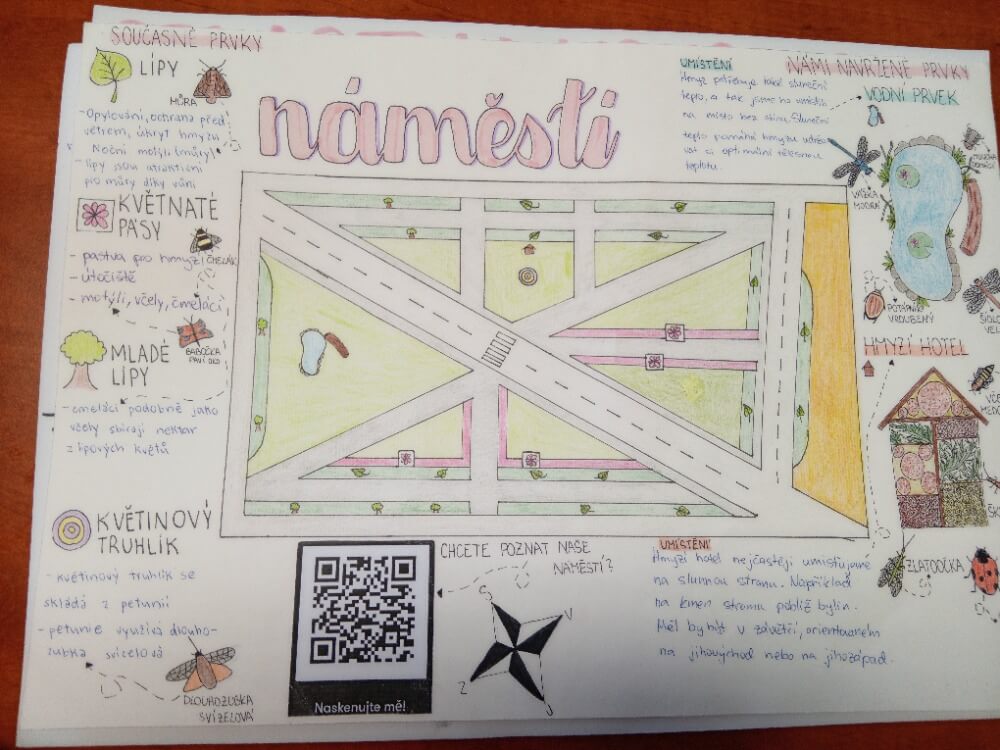 SOUČASNÉ PRVKY
LÍPY
MŮRA
- Opylování, ochrana před
větrem, úkryt hmyzu
Noční motýli (můry)
- lípy jsou atraktivní
pro můry díky vůni
KVĚTNATÉ
PÁSY
ČMELÁK
- pastva pro hmyz
- útočiště
- motýli, včely, čmeláci
BABOČKA
PAVÍ OKO
MLADÉ
LÍPY
- čmeláci podobně jako
včely sbírají nektar
z lipových květů
KVĚTINOVÝ
TRUHLÍK
- květinový truhlík se
skládá z petunií
- petunie využívá dlouho-
zubka svízelová
DLOUHOZUBKA
SVÍZELOVÁ
náměstí
UMÍSTĚNÍ
Hmyz potřebuje také sluneční
teplo, a tak jsme ho umístili
na místo bez stínu. Sluneční
teplo pomáhá hmyzu udržo-
vat si optimální tělesnou
teplotu.
NÁMI NAVRŽENÉ PRVKY
VODNÍ PRVEK
VÁŽKA
MODRÁ
POTÁPNÍK
VROUBENÝ
HMYZÍ HOTEL
ZLATOOČKA
UMÍSTĚNÍ
Hmyzí hotel nejčastěji umisťujeme
na slunnou stranu. Například
na kmen stromu poblíž bylin.
Měl by být v závětří, orientovaném
na jihovýchod nebo na jihozápad.
CHCETE POZNAT NAŠE
NÁMĚSTÍ?
S
V
Z
J
Naskenujte mě!